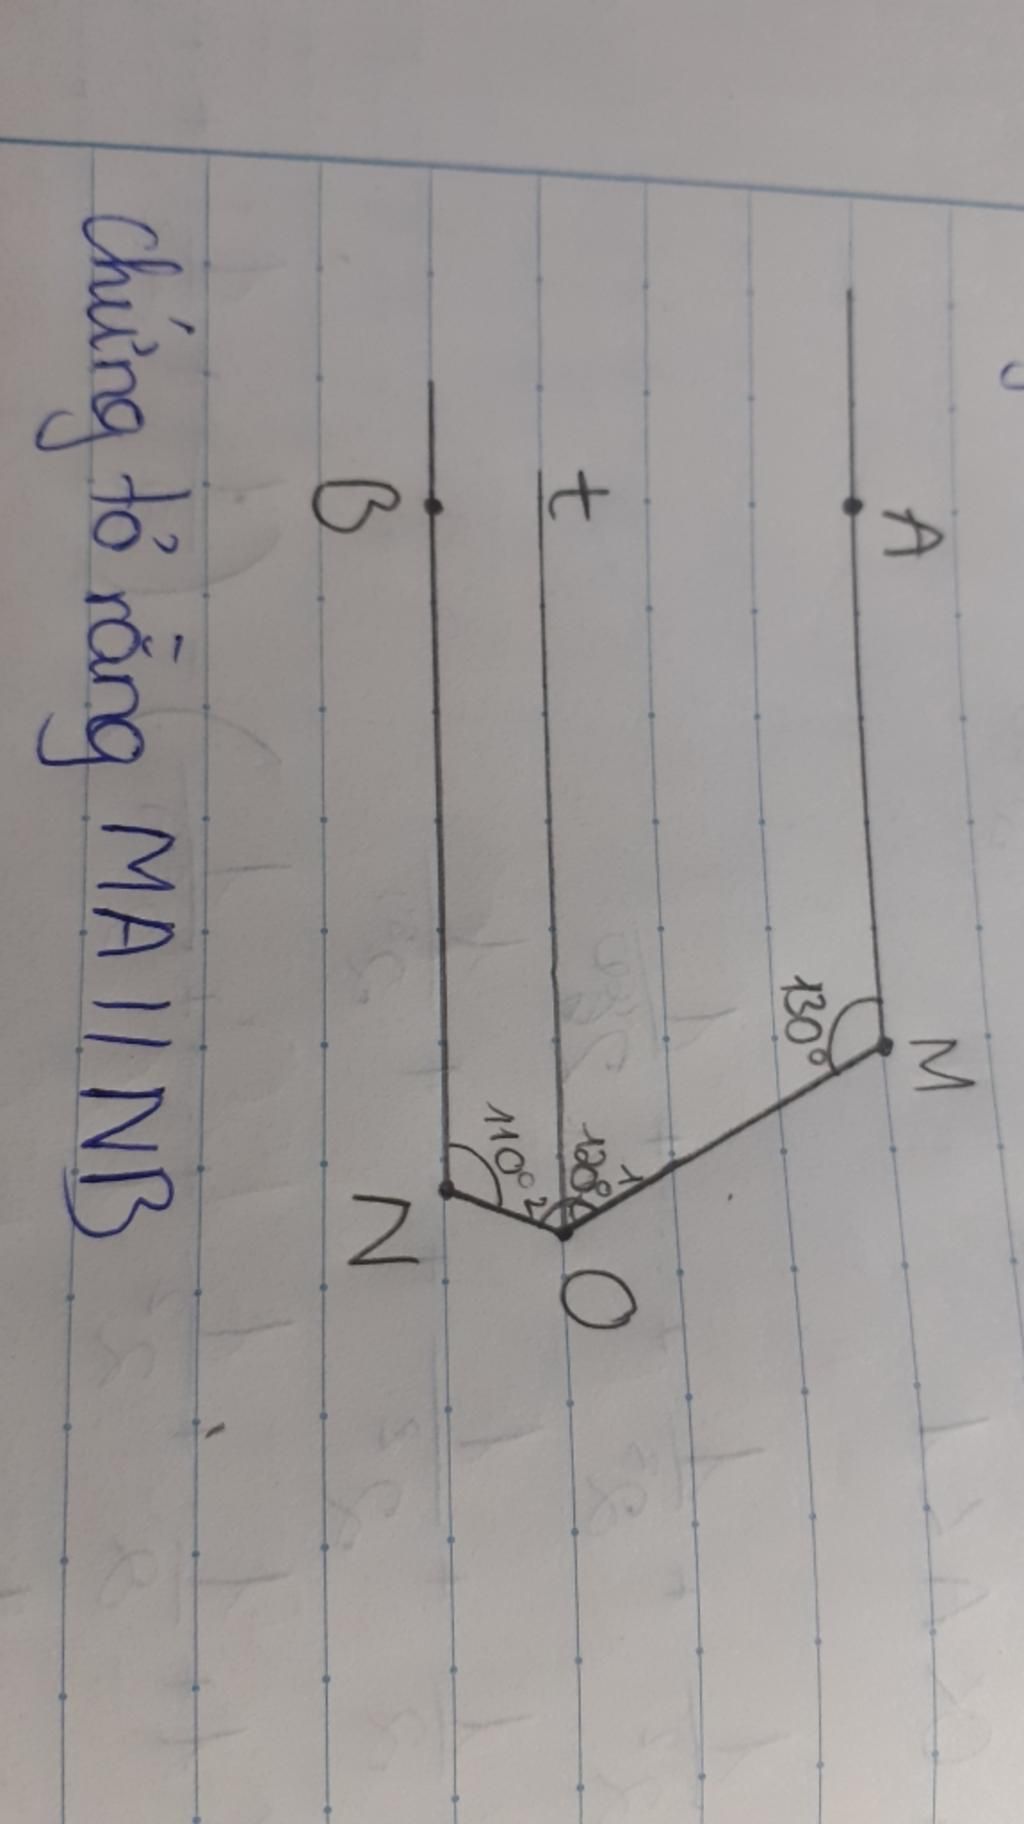 A
M
130°
t
120°
1
O
2
110°
B
N
Chứng tỏ rằng MA // NB